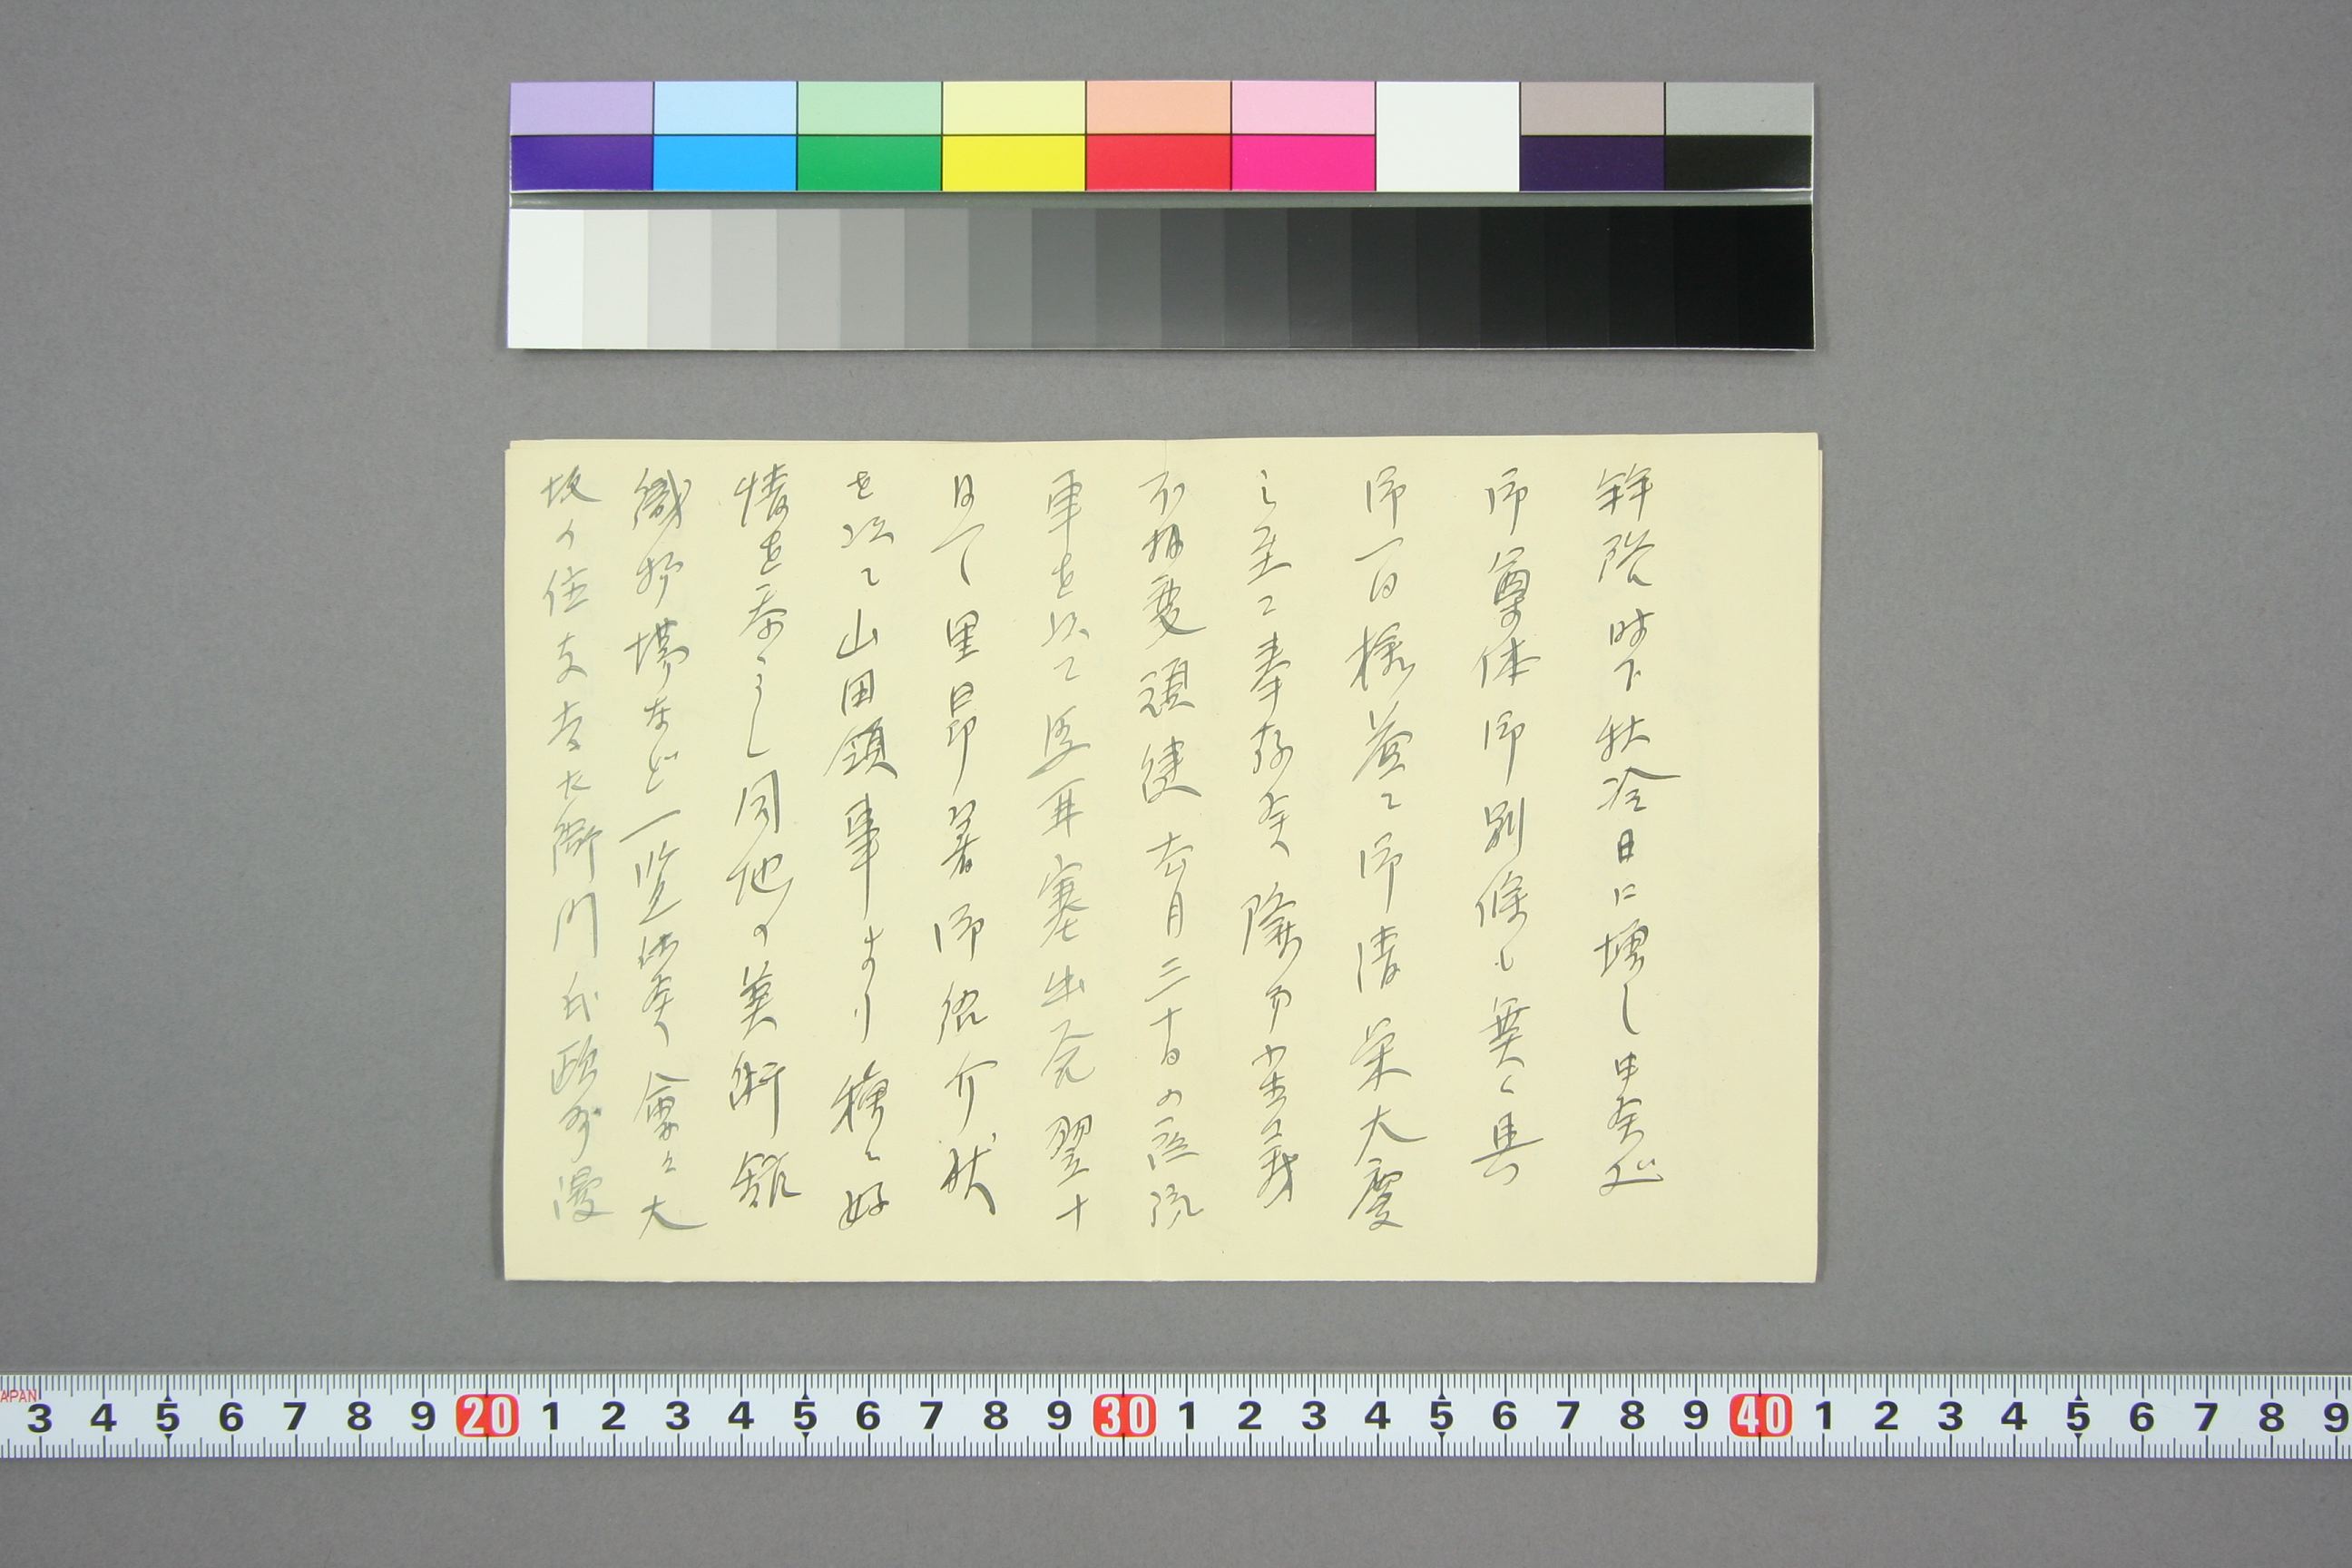 拝啓 時下秋冷日に増し申候処
御尊体御別條も無く
御一同様益々御清栄大慶
之至ニ奉存候 降而小生義
不相変頑健 去月三十日の
車を以て馬耳塞出発 翌十
日 里昴着 御紹介状
を以て山田領事より種々好
情を忝うし同地の美術館
織物場など一覧仕候 會々大
坂の住友吉左衛門氏欧州漫
JAPAN 3 4 5 6 7 8 9 20 1 2 3 4 5 6 7 8 9 30 1 2 3 4 5 6 7 8 9 40 1 2 3 4 5 6 7 8 9